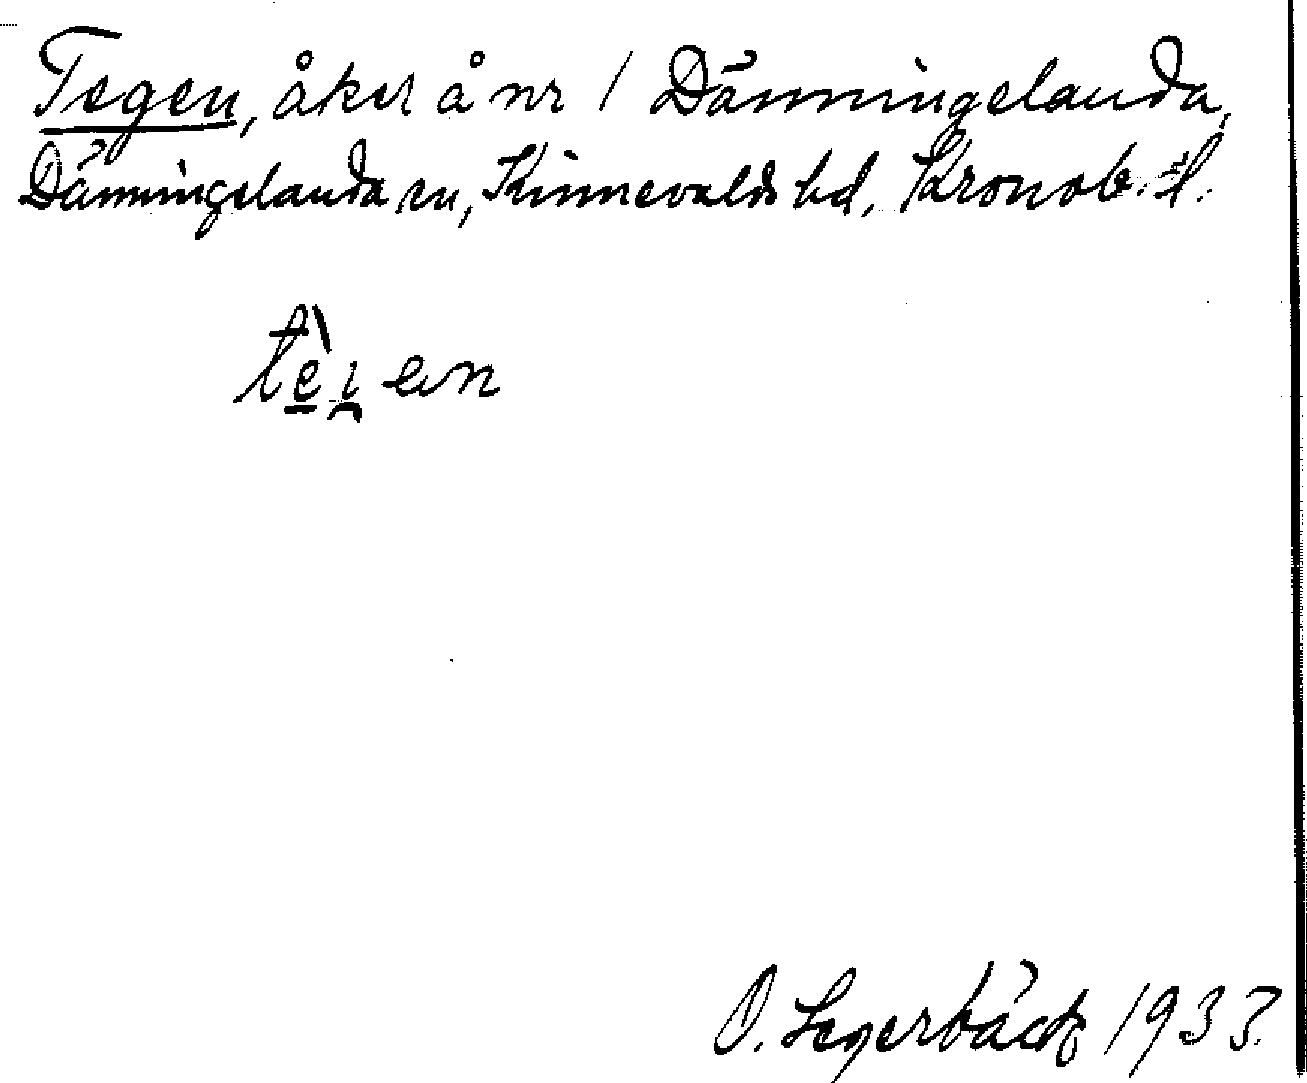 Tegen, åker å nr 1 Dänningelanda,
Dänningelanda sn, Kinnevalds hd, Kronob. l.
tèi̯en
O. Segerbäck 1933.